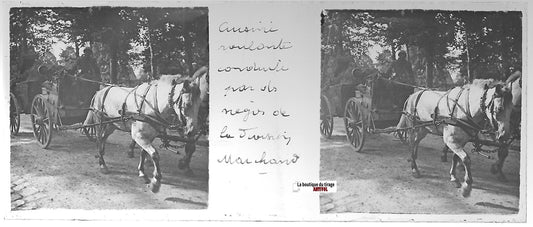 Cuisine
roulante
conduite
par des
nègres de
la Division
Marchand
La boutique du tirage
ARTFOL